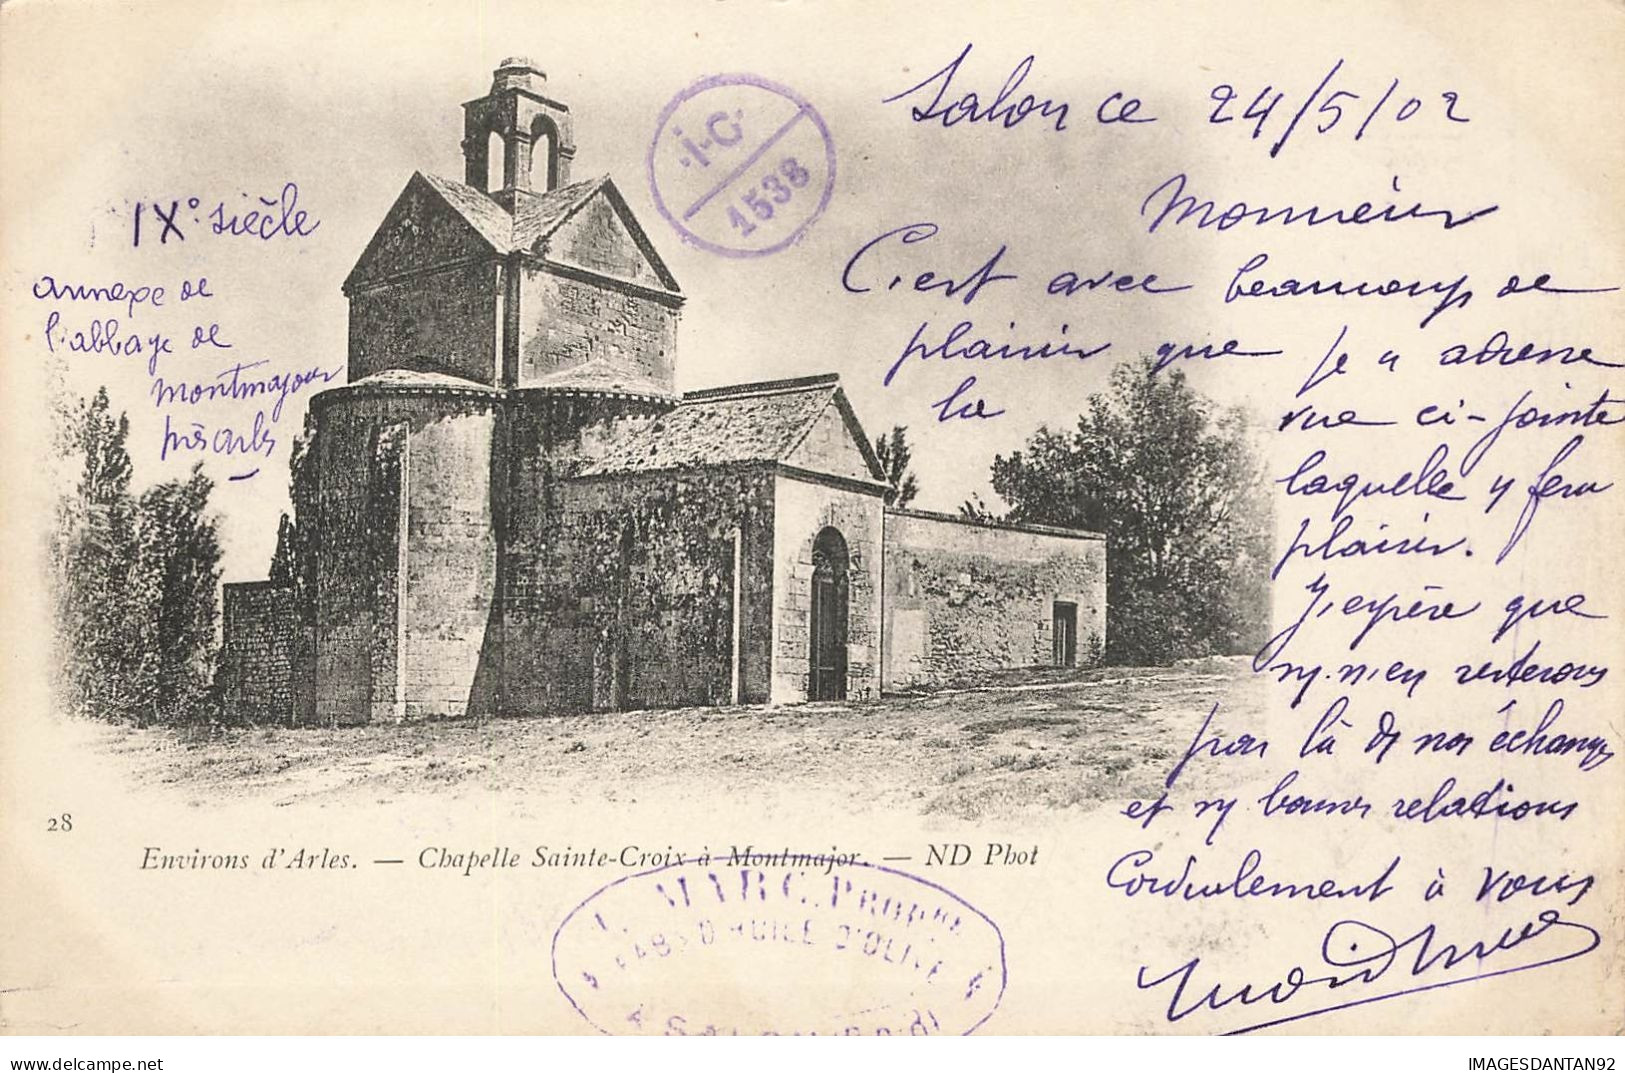 Salon ce 24/5/02
Monsieur
C'est avec beaucoup de
plaisir que je v adresse
la vue ci-jointe
laquelle v fera
plaisir.
J'espère que
n. n'en resterons
pas là de nos échanges
et n/ bonnes relations
Cordialement à vous
IXº siècle
annexe de
l'abbaye de
montmajour
près Arles
·I·G·
1538
28
Environs d'Arles. — Chapelle Sainte-Croix à Montmajor. — ND Phot
L. MARC, PROPRE
FAB. D'HUILE D'OLIVE
À SALON (B.d.R)
delcampe.net
IMAGESDANTAN92